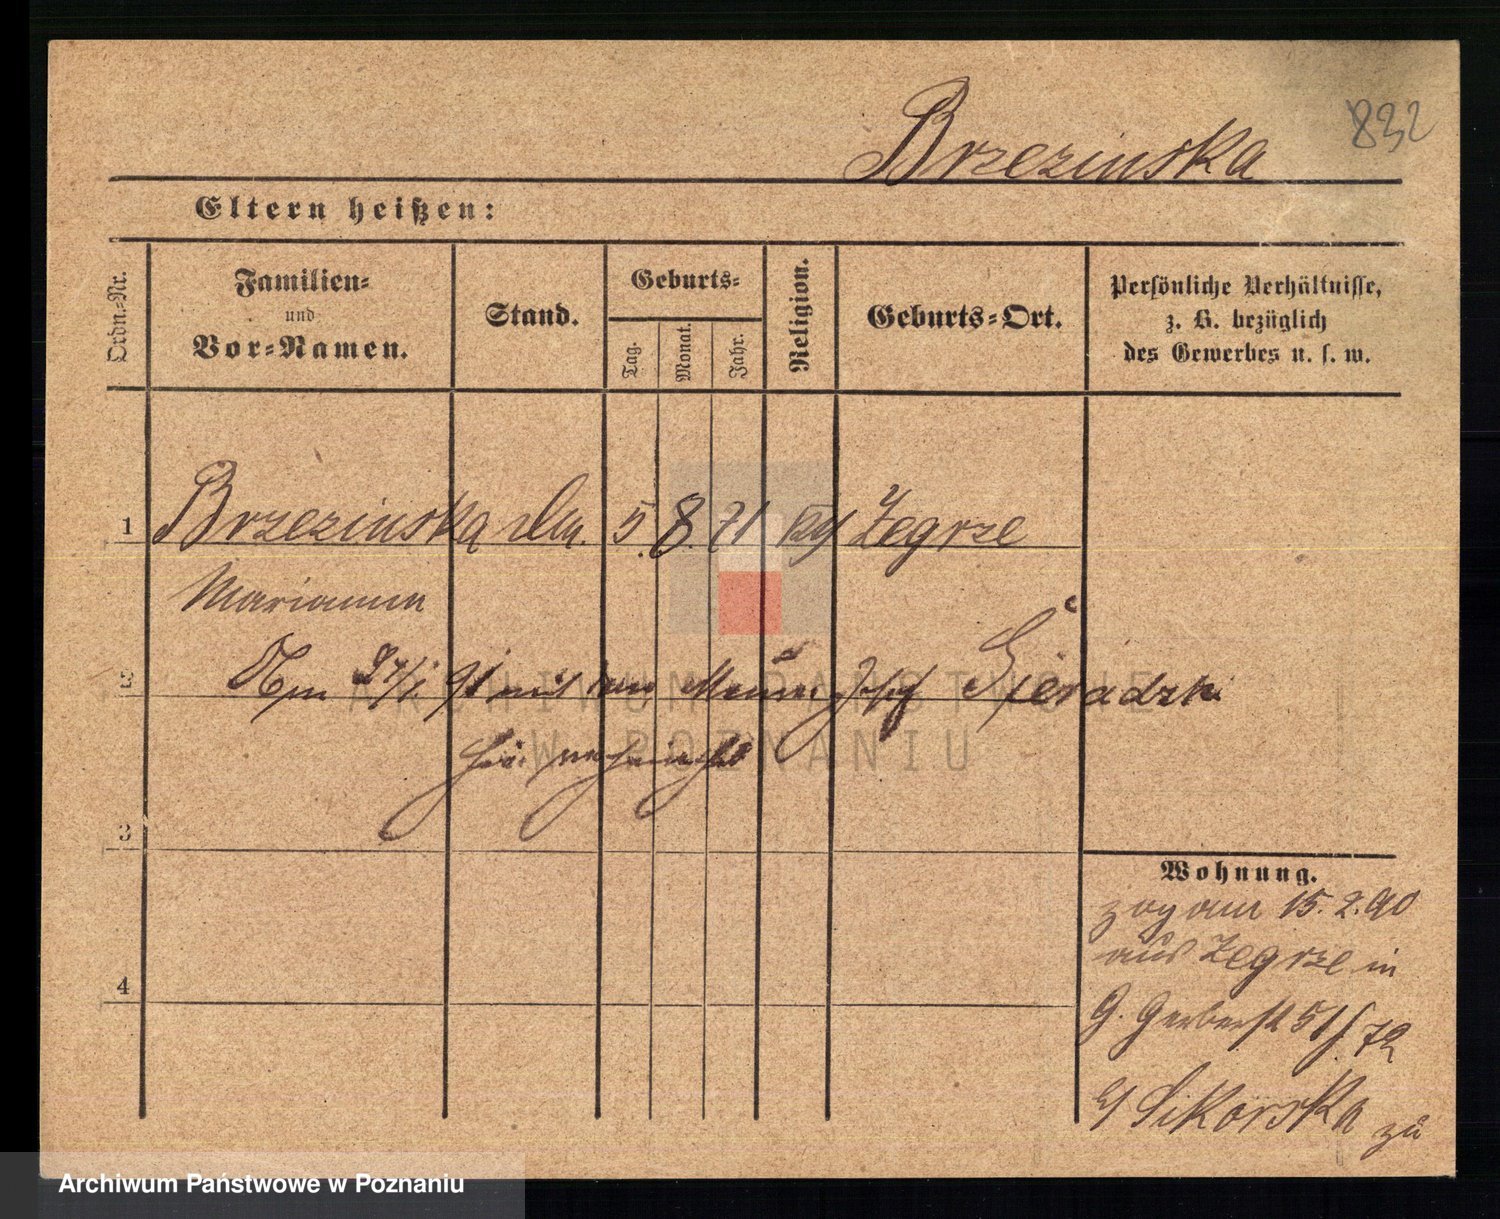 832
Brzezinska
Eltern heißen:
Ordn.-Nr.
Familien-
und
Vor-Namen.
Stand.
Geburts-
Tag.
Monat.
Jahr.
Religion.
Geburts-Ort.
Persönliche Verhältnisse,
z. B. bezüglich
des Gewerbes u. s. w.
1 Brzezinska 5. 8. 71 Zegrze
Marianna
2 Am 91 mit dem Maurer Josef Sieradzki
hier verheirathet
3
Wohnung.
zog am 15. 2. 90
aus Zegrze in
4
G. Gerberst 51
Sikorska zu
ARCHIWUM PAŃSTWOWE
W POZNANIU
Archiwum Państwowe w Poznaniu